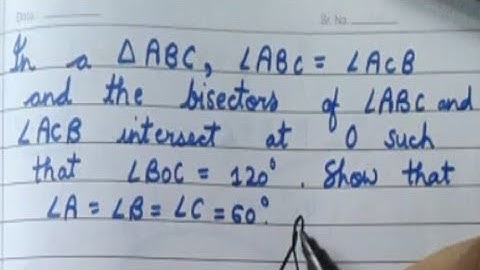 Date
Sr. No.
In a △ABC, ∠ABC = ∠ACB
and the bisectors of ∠ABC and
∠ACB intersect at O such
that ∠BOC = 120°. Show that
∠A = ∠B = ∠C = 60°.